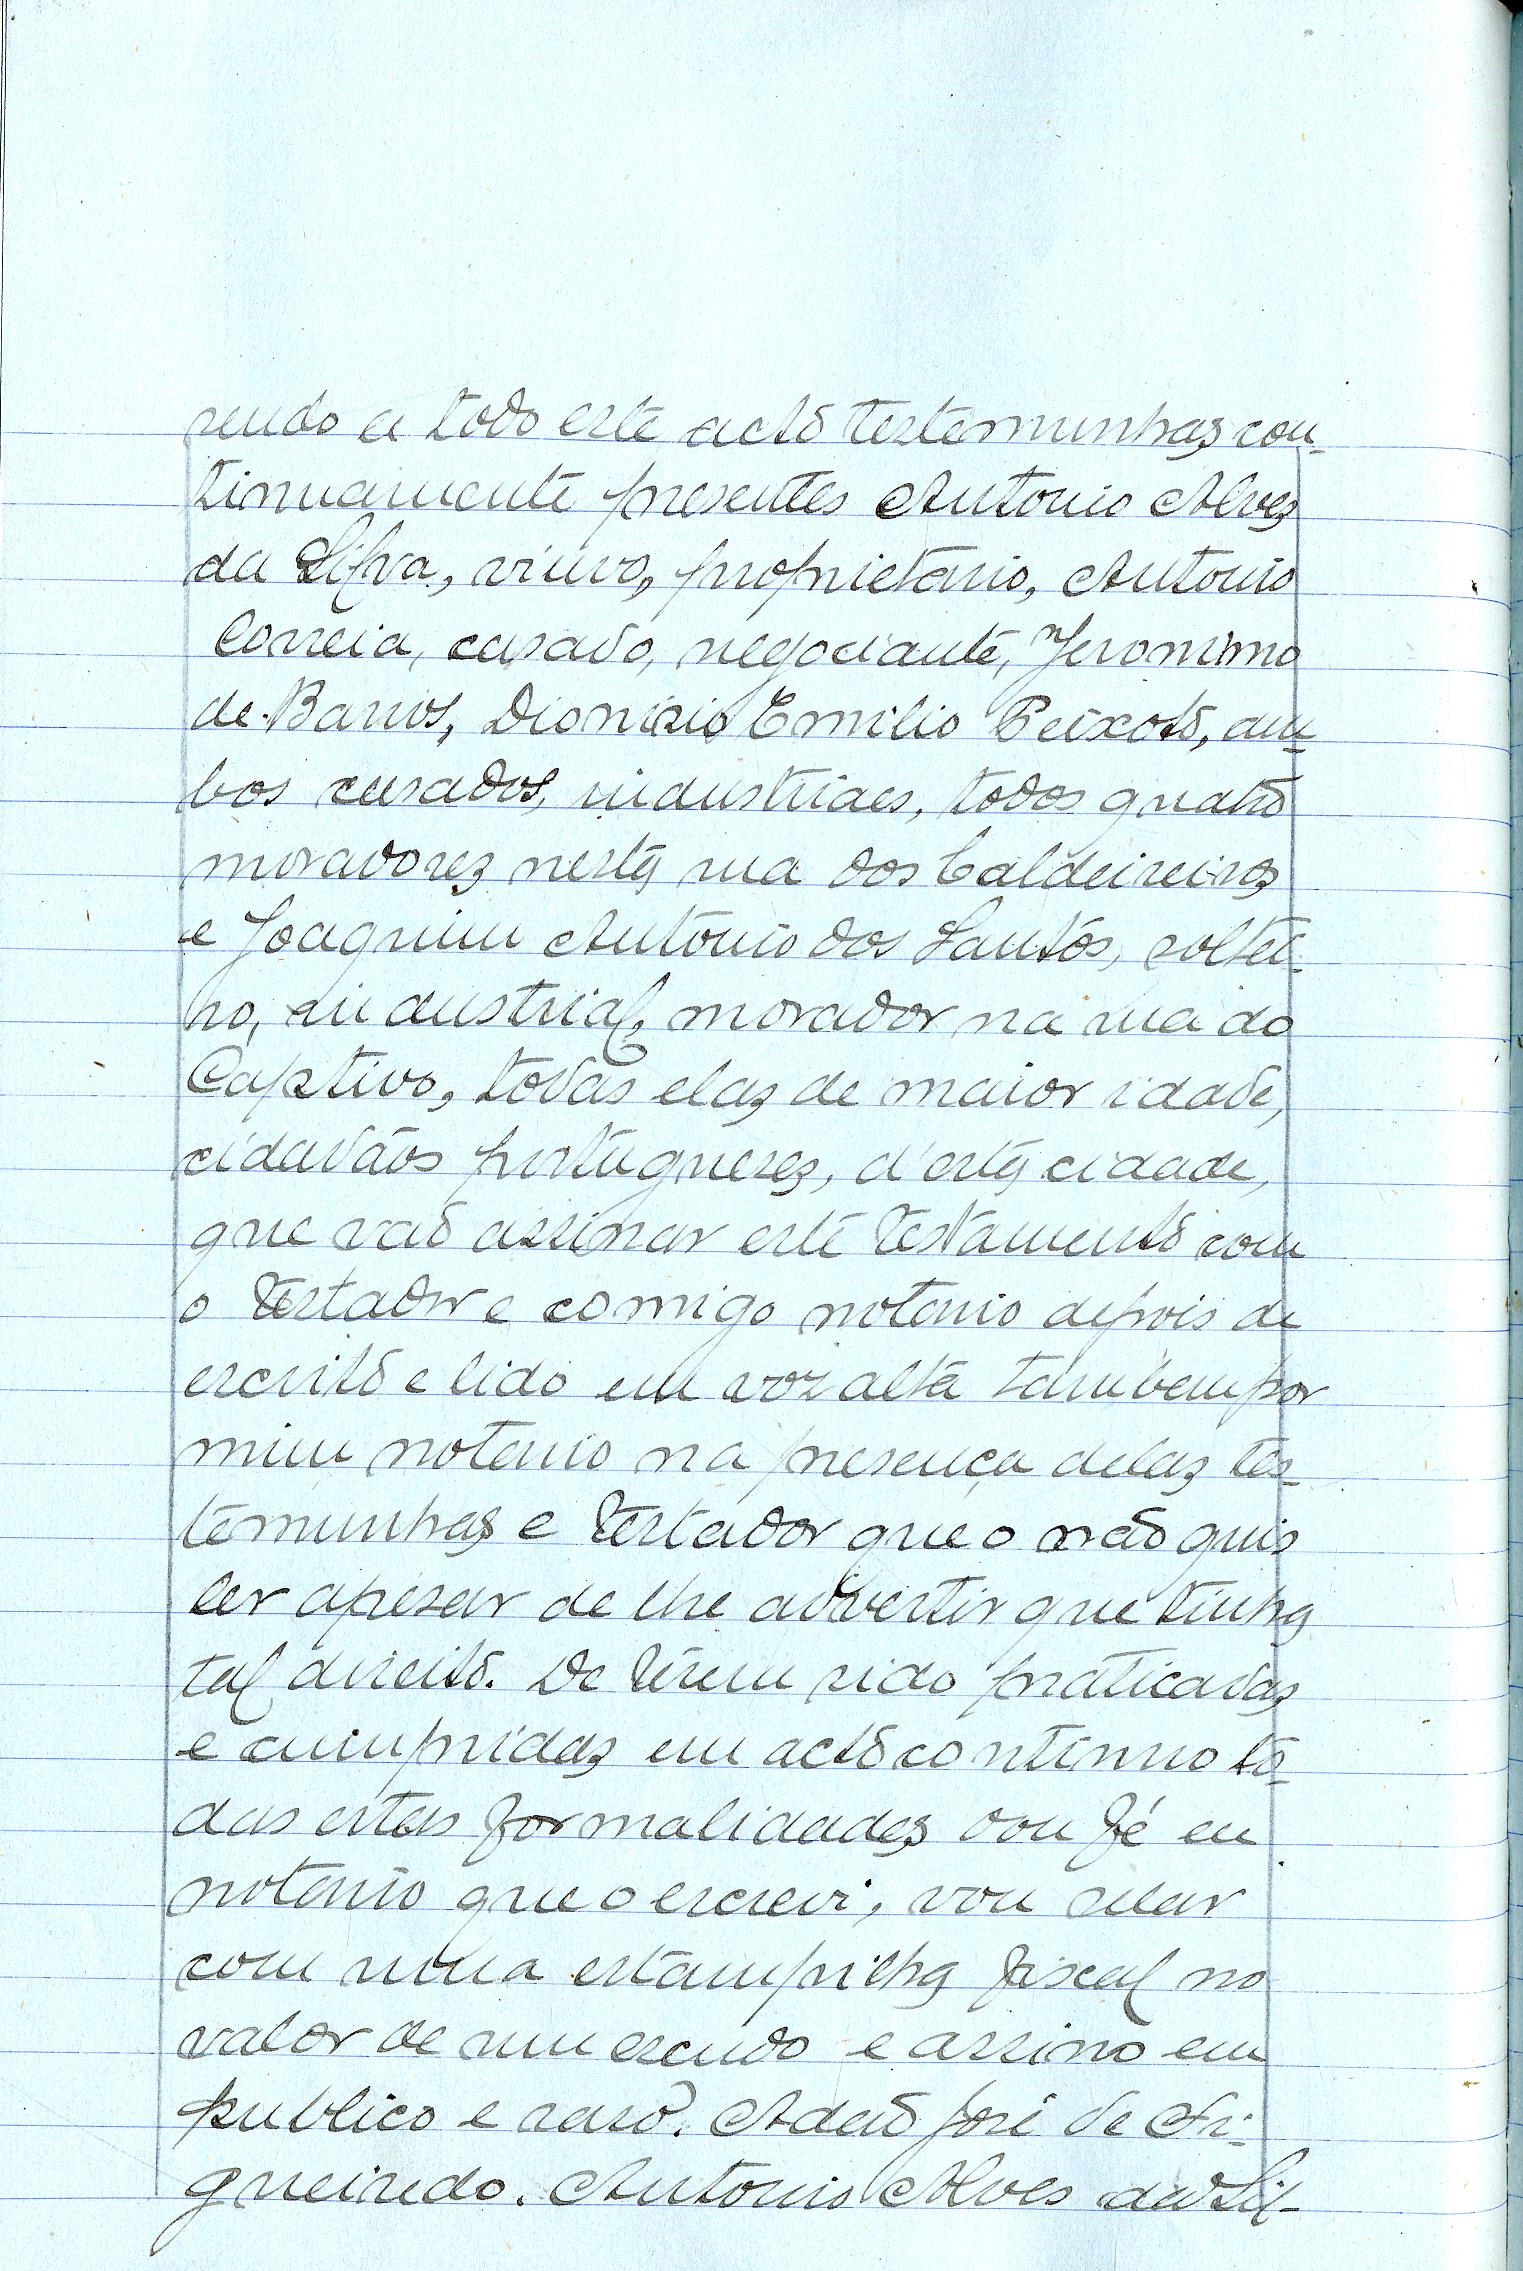 sendo a todo este acto testemunhas con-
tinuamente presentes Antonio Alves
da Silva, viuvo, proprietario, Antonio
Correia, casado, negociante, Jeronimo
de Barros, Dionizio Emilio Peixoto, am-
bos casados, industriaes, todos quatro
moradores nesta rua dos Caldeireiros
e Joaquim Antonio dos Santos, soltei-
ro, industrial, morador na rua do
Captivo, todas elas de maior idade,
cidadãos portuguezes, d'esta cidade,
que vaõ assinar este testamento com
o testador e comigo notario depois de
escrito e lido em voz alta tambem por
mim notario na presença delas tes-
temunhas e testador que o naõ quis
ler apesar de lhe advertir que tinha
tal direito. De terem sido praticadas
e cumpridas em acto continuo to-
das estas formalidades dou fé eu
notario que o escrevi, vou selar
com uma estampilha fiscal no
valor de um escudo e assino em
publico e raso. Adaõ José de Fi-
gueiredo. Antonio Alves da Sil-